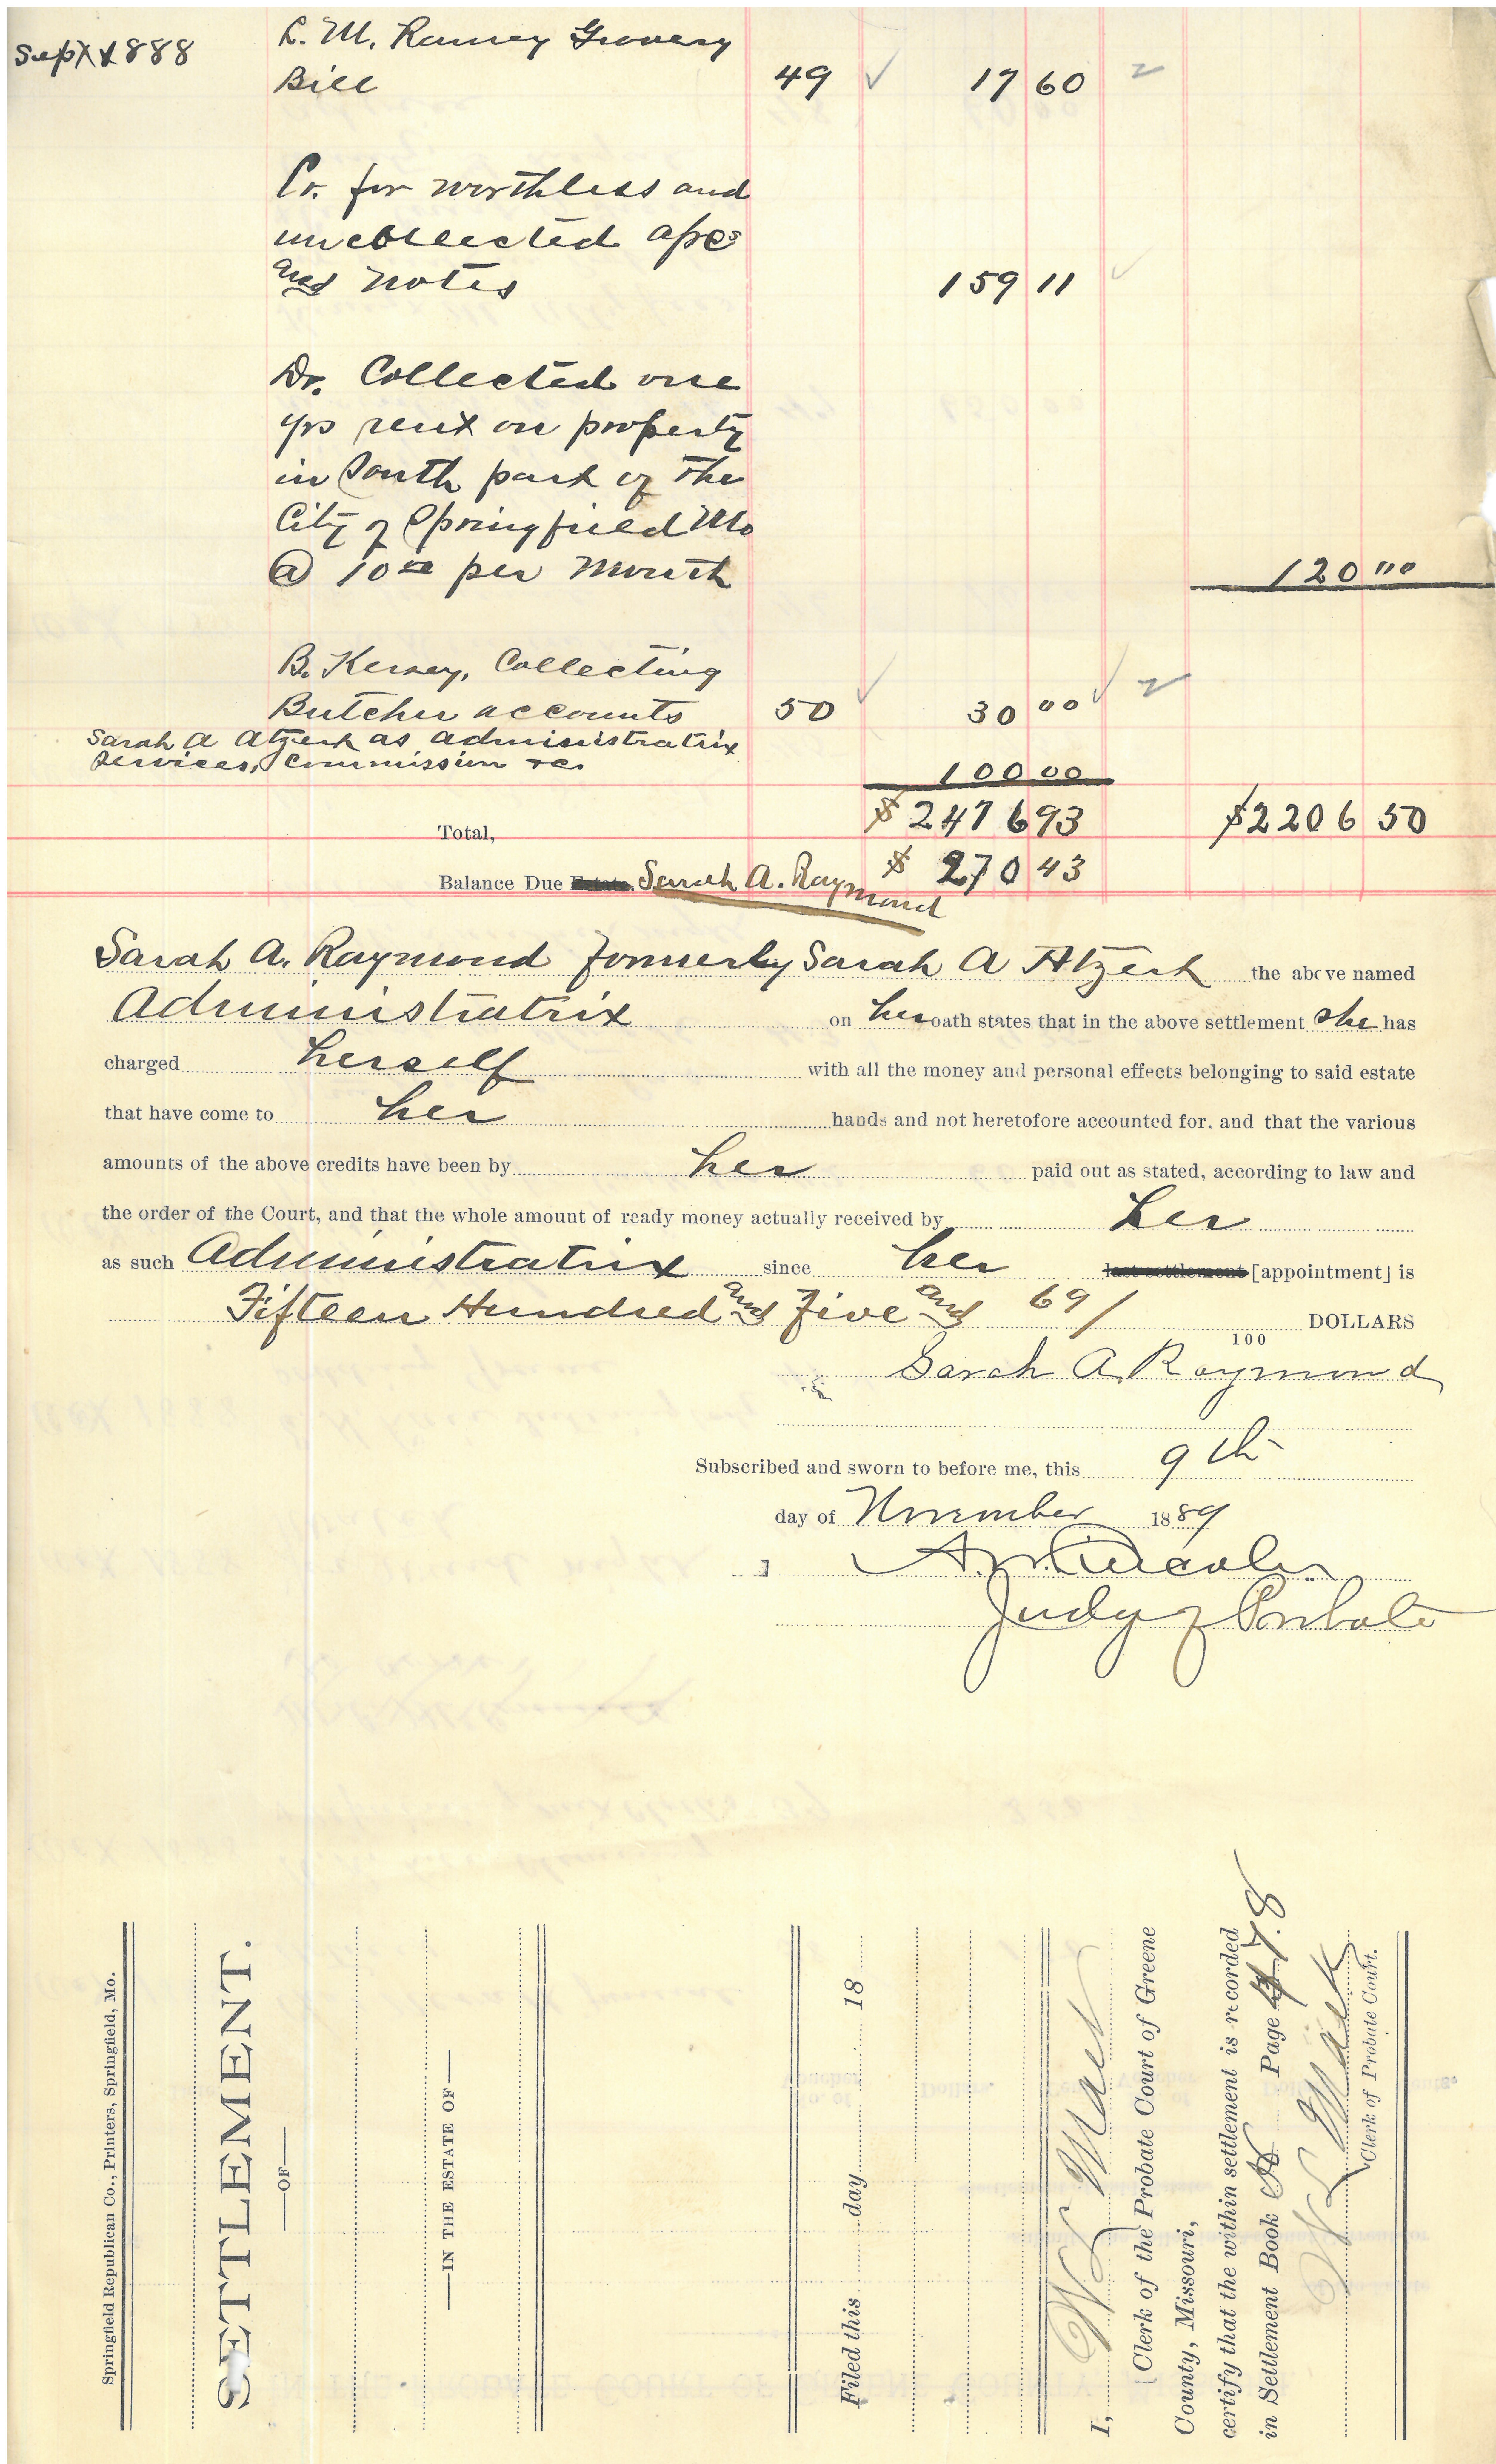 Sept 1888 L. M. Rainey Grocery
Bill 49 ✓ 17 60
Cr. for worthless and
uncollected apcs
and notes 159 11 ✓
Dr. Collected one
yrs rent on property
in South part of the
City of Springfield Mo
@ 10 00 per month 120 00
B. Kersey, Collecting
Butcher accounts 50 ✓ 30 00 ✓
Sarah A Atzert as administratrix
services, Commission &c. 100 00
Total, $2476 93 $2206 50
Balance Due Estate. Sarah A. Raymond $ 270 43
Sarah A. Raymond formerly Sarah A Atzert the above named
Administratrix on her oath states that in the above settlement she has
charged herself with all the money and personal effects belonging to said estate
that have come to her hands and not heretofore accounted for. and that the various
amounts of the above credits have been by her paid out as stated, according to law and
the order of the Court, and that the whole amount of ready money actually received by her
as such Administratrix since her last settlement [appointment] is
Fifteen Hundred and Five and 69/100 DOLLARS
Sarah A. Raymond
Subscribed and sworn to before me, this 9th
day of November 1889
Judge of Probate
Springfield Republican Co., Printers, Springfield, Mo.
SETTLEMENT.
—OF—
—IN THE ESTATE OF—
Filed this day 18
I, W L Mack
Clerk of the Probate Court of Greene
County, Missouri,
certify that the within settlement is recorded
in Settlement Book Page 478
W L Mack
Clerk of Probate Court.